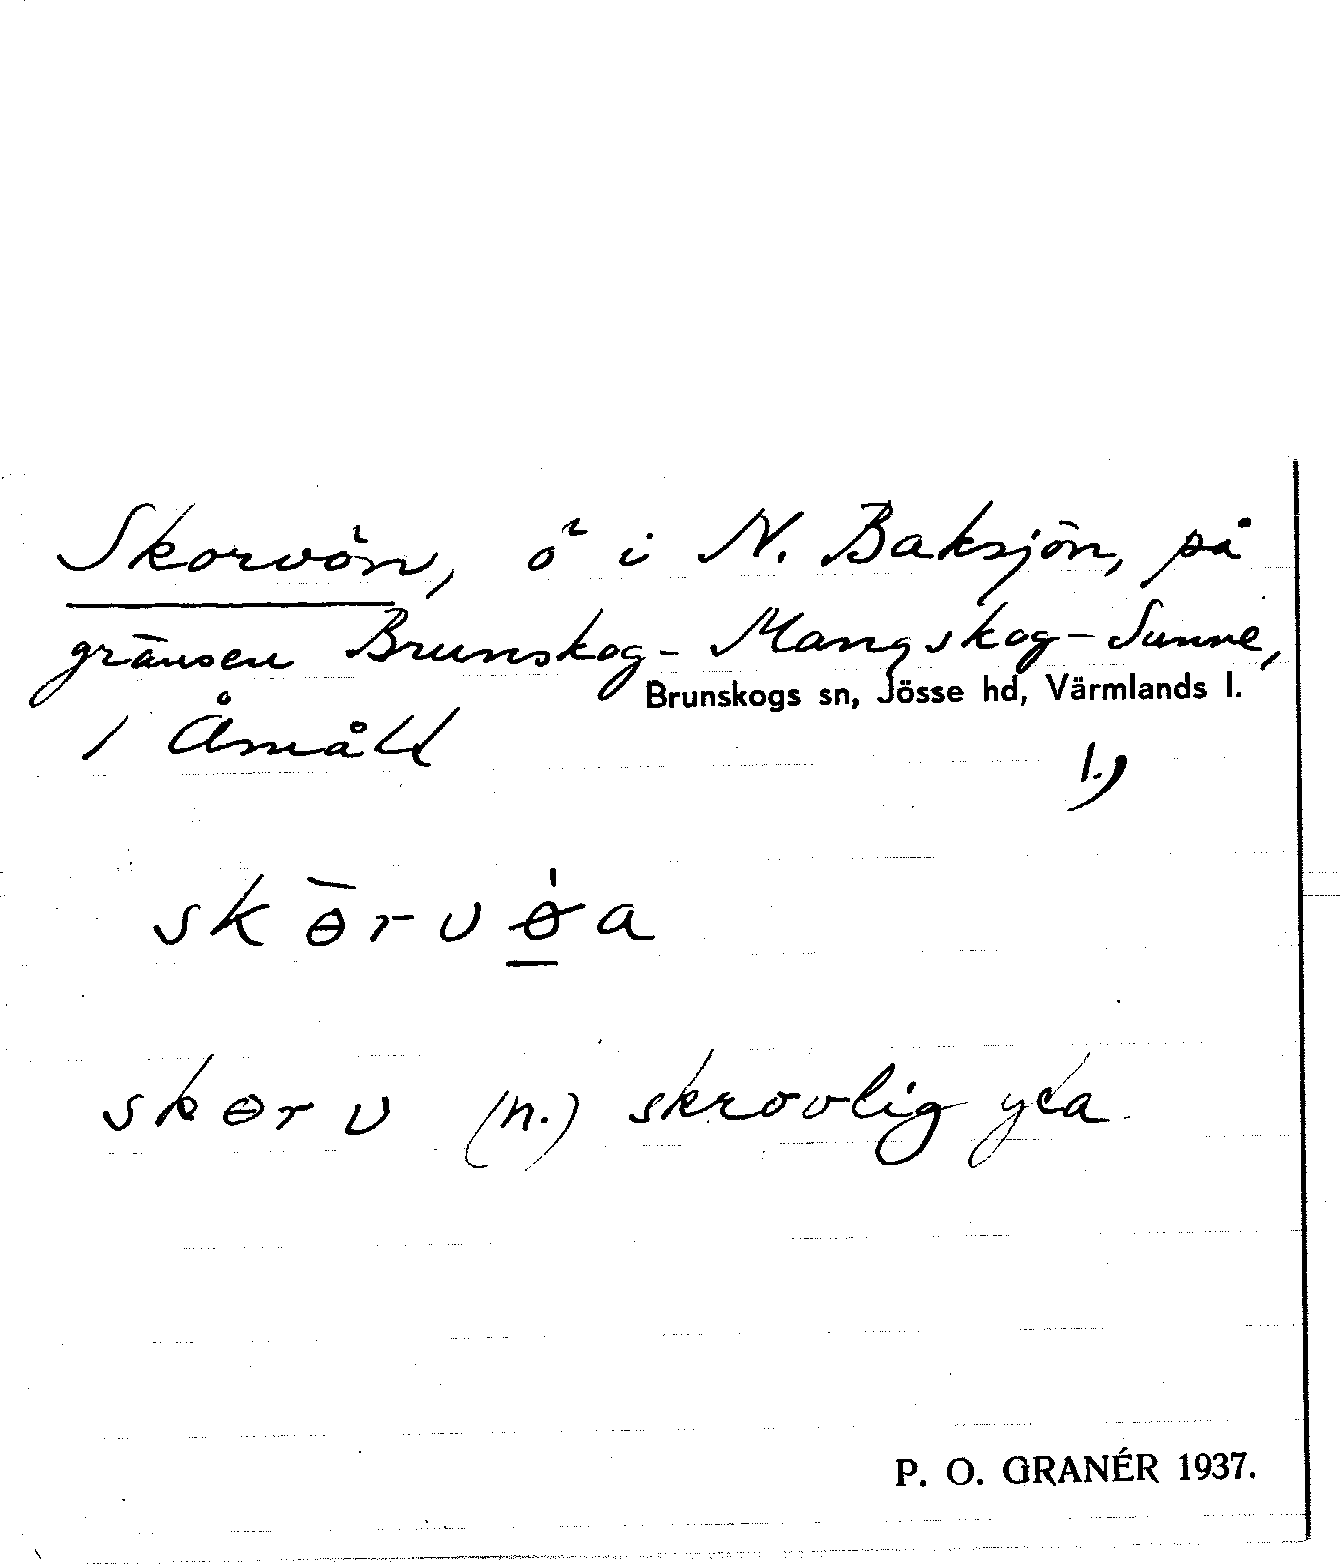 Skorvön, ö i N. Baksjön, på
gränsen Brunskog - Mangskog - Sunne,
Brunskogs sn, Jösse hd, Värmlands l.
1 Åmåld
1.)
skɵ̄rvø̱̍a
skɵrv (n.) skrovlig yta
P. O. GRANÉR 1937.